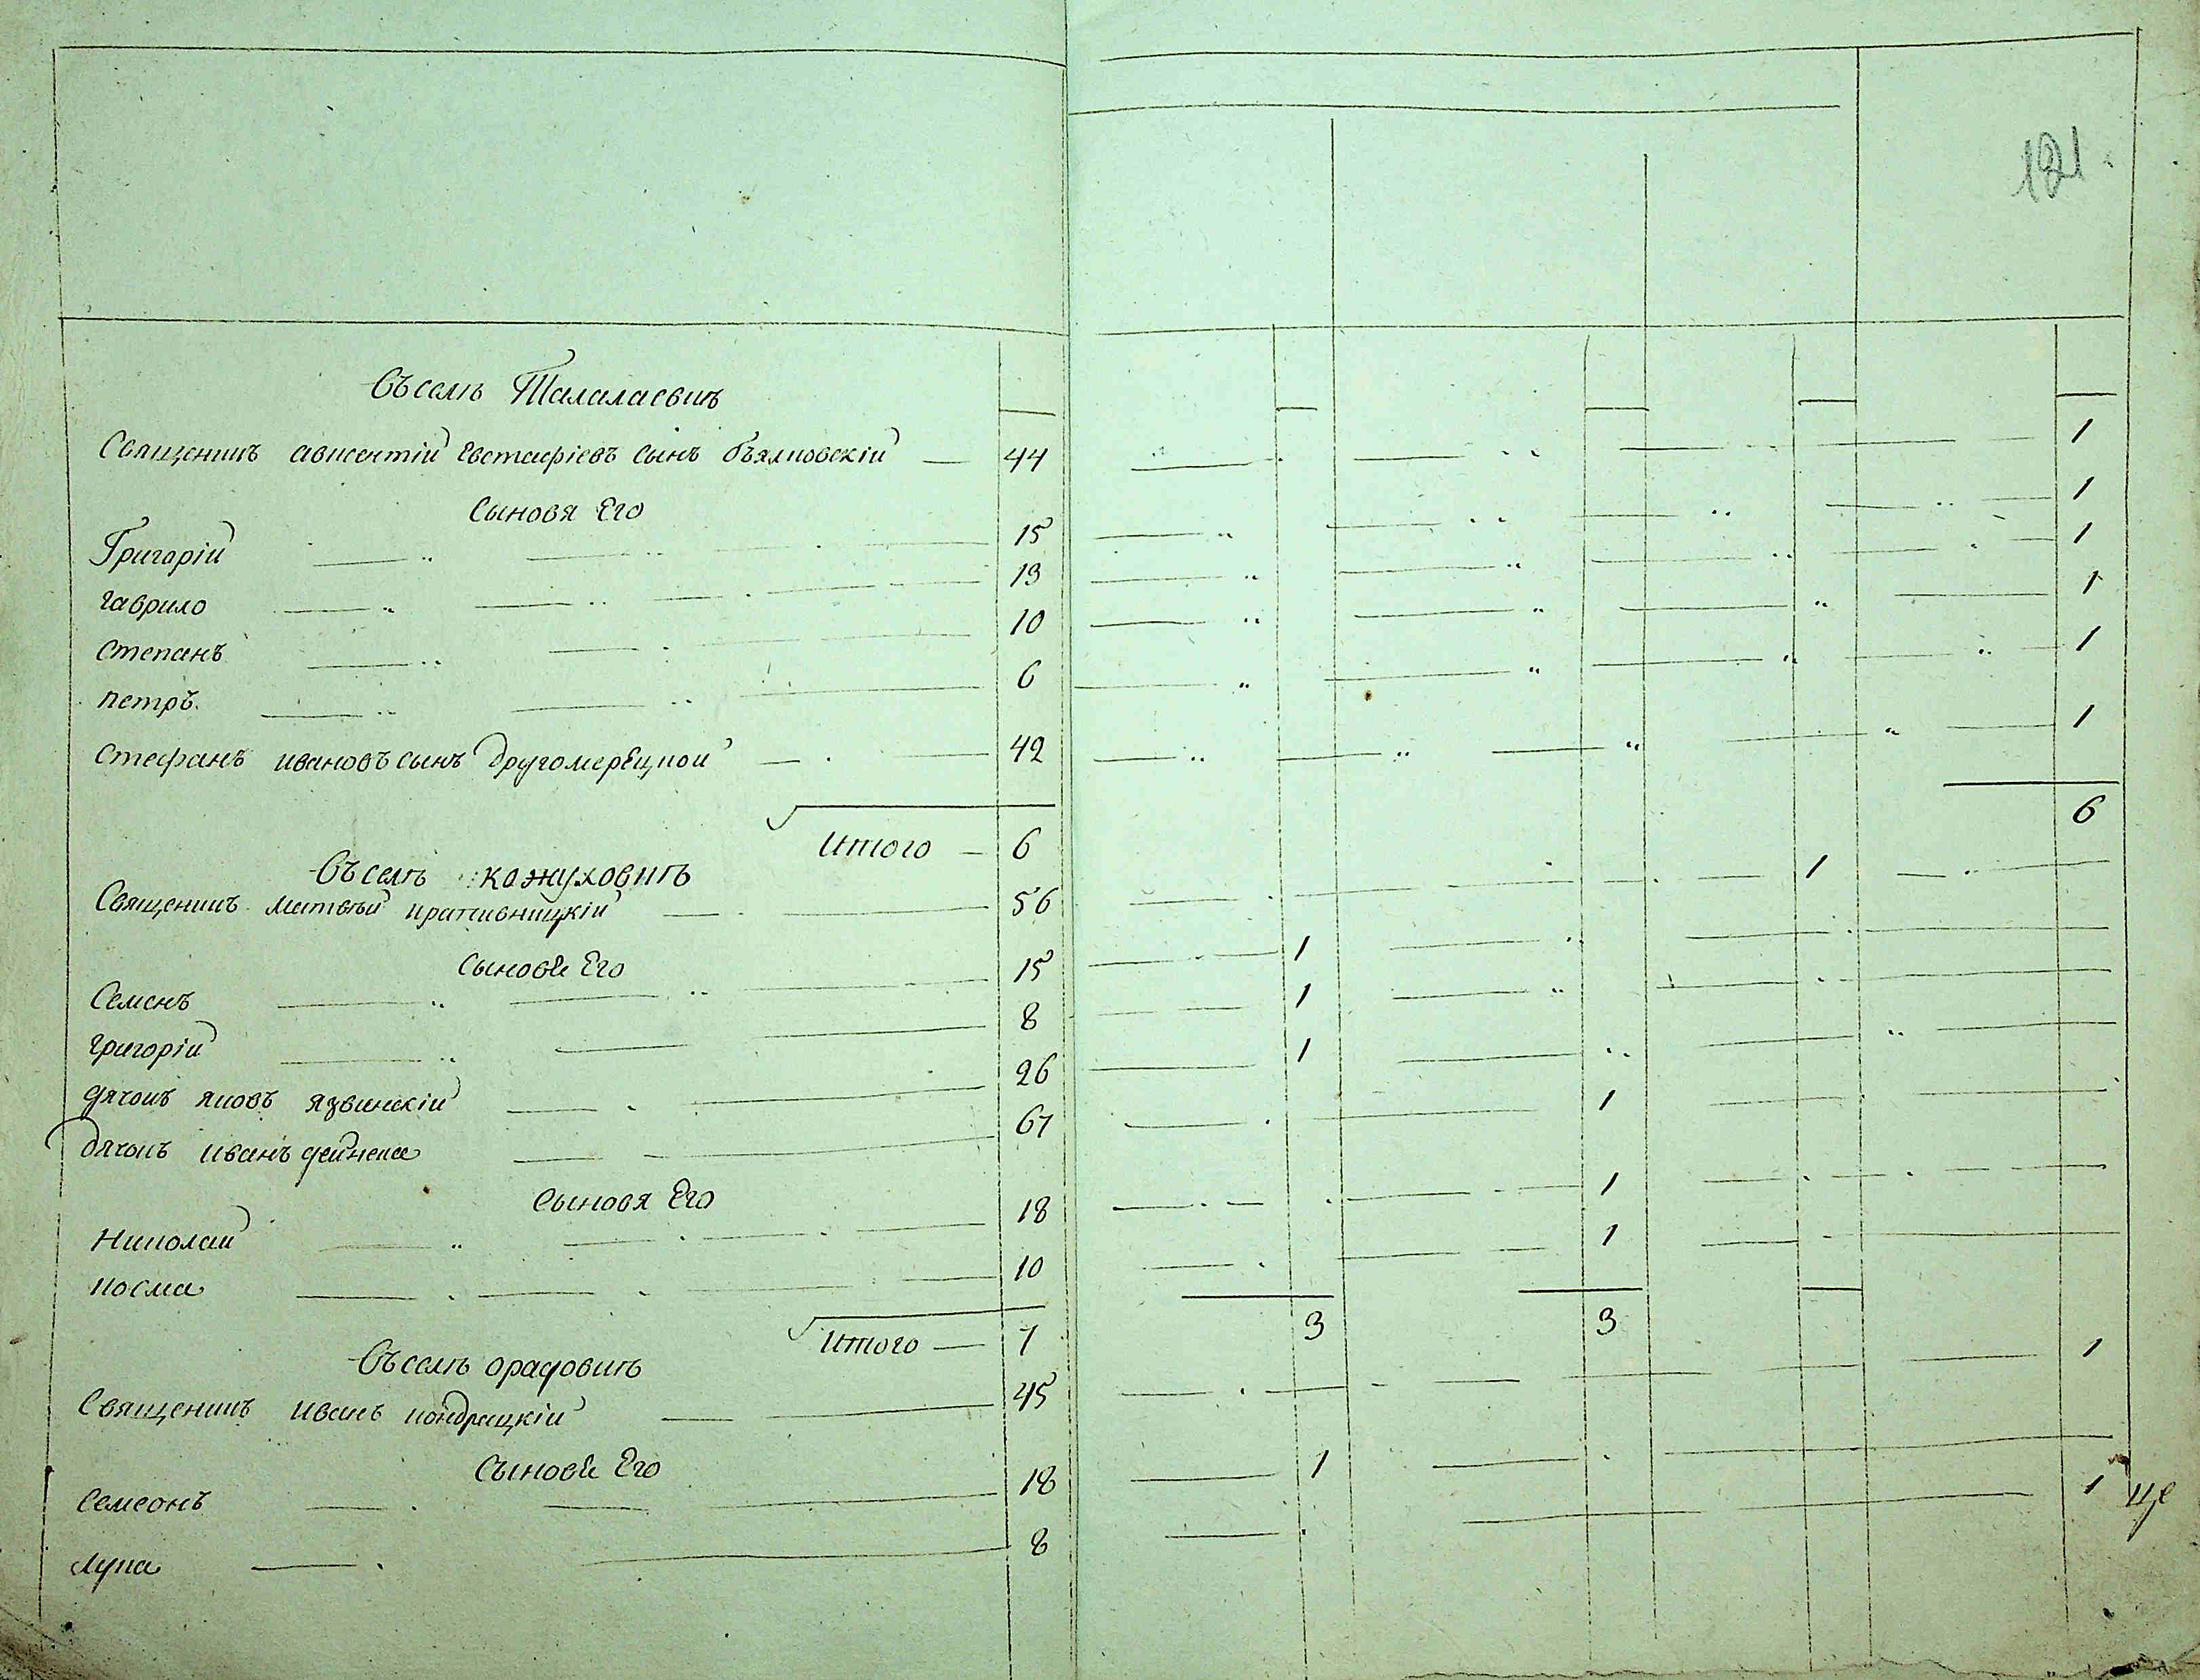 121
Въ селѣ Талалаевкѣ
Священикъ авксентій Евстафіевъ сынъ бѣялковскій — 44 1
Сыновя Его
Григорій 15 1
гаврило 13 1
степанъ 10 1
петръ 6 1
стефанъ ивановъ сынъ другомерецкои 42 1
Итого — 6 6
Въ селѣ кожуховкѣ
Священикъ Матвѣй крапивницкій 56 1
Сыновѣ Его
Семенъ 15 1
григорій 8 1
дячокъ яковъ язвинскій 26 1
дячокъ иванъ дейнека 67 1
Сыновя Его
Николай 18 1
косма 10 1
Итого — 7 3 3
Въ селѣ орадовкѣ
Священикъ иванъ кондрацкій 45 1
Сыновѣ Его
Семеонъ 18 1
лука 8 1